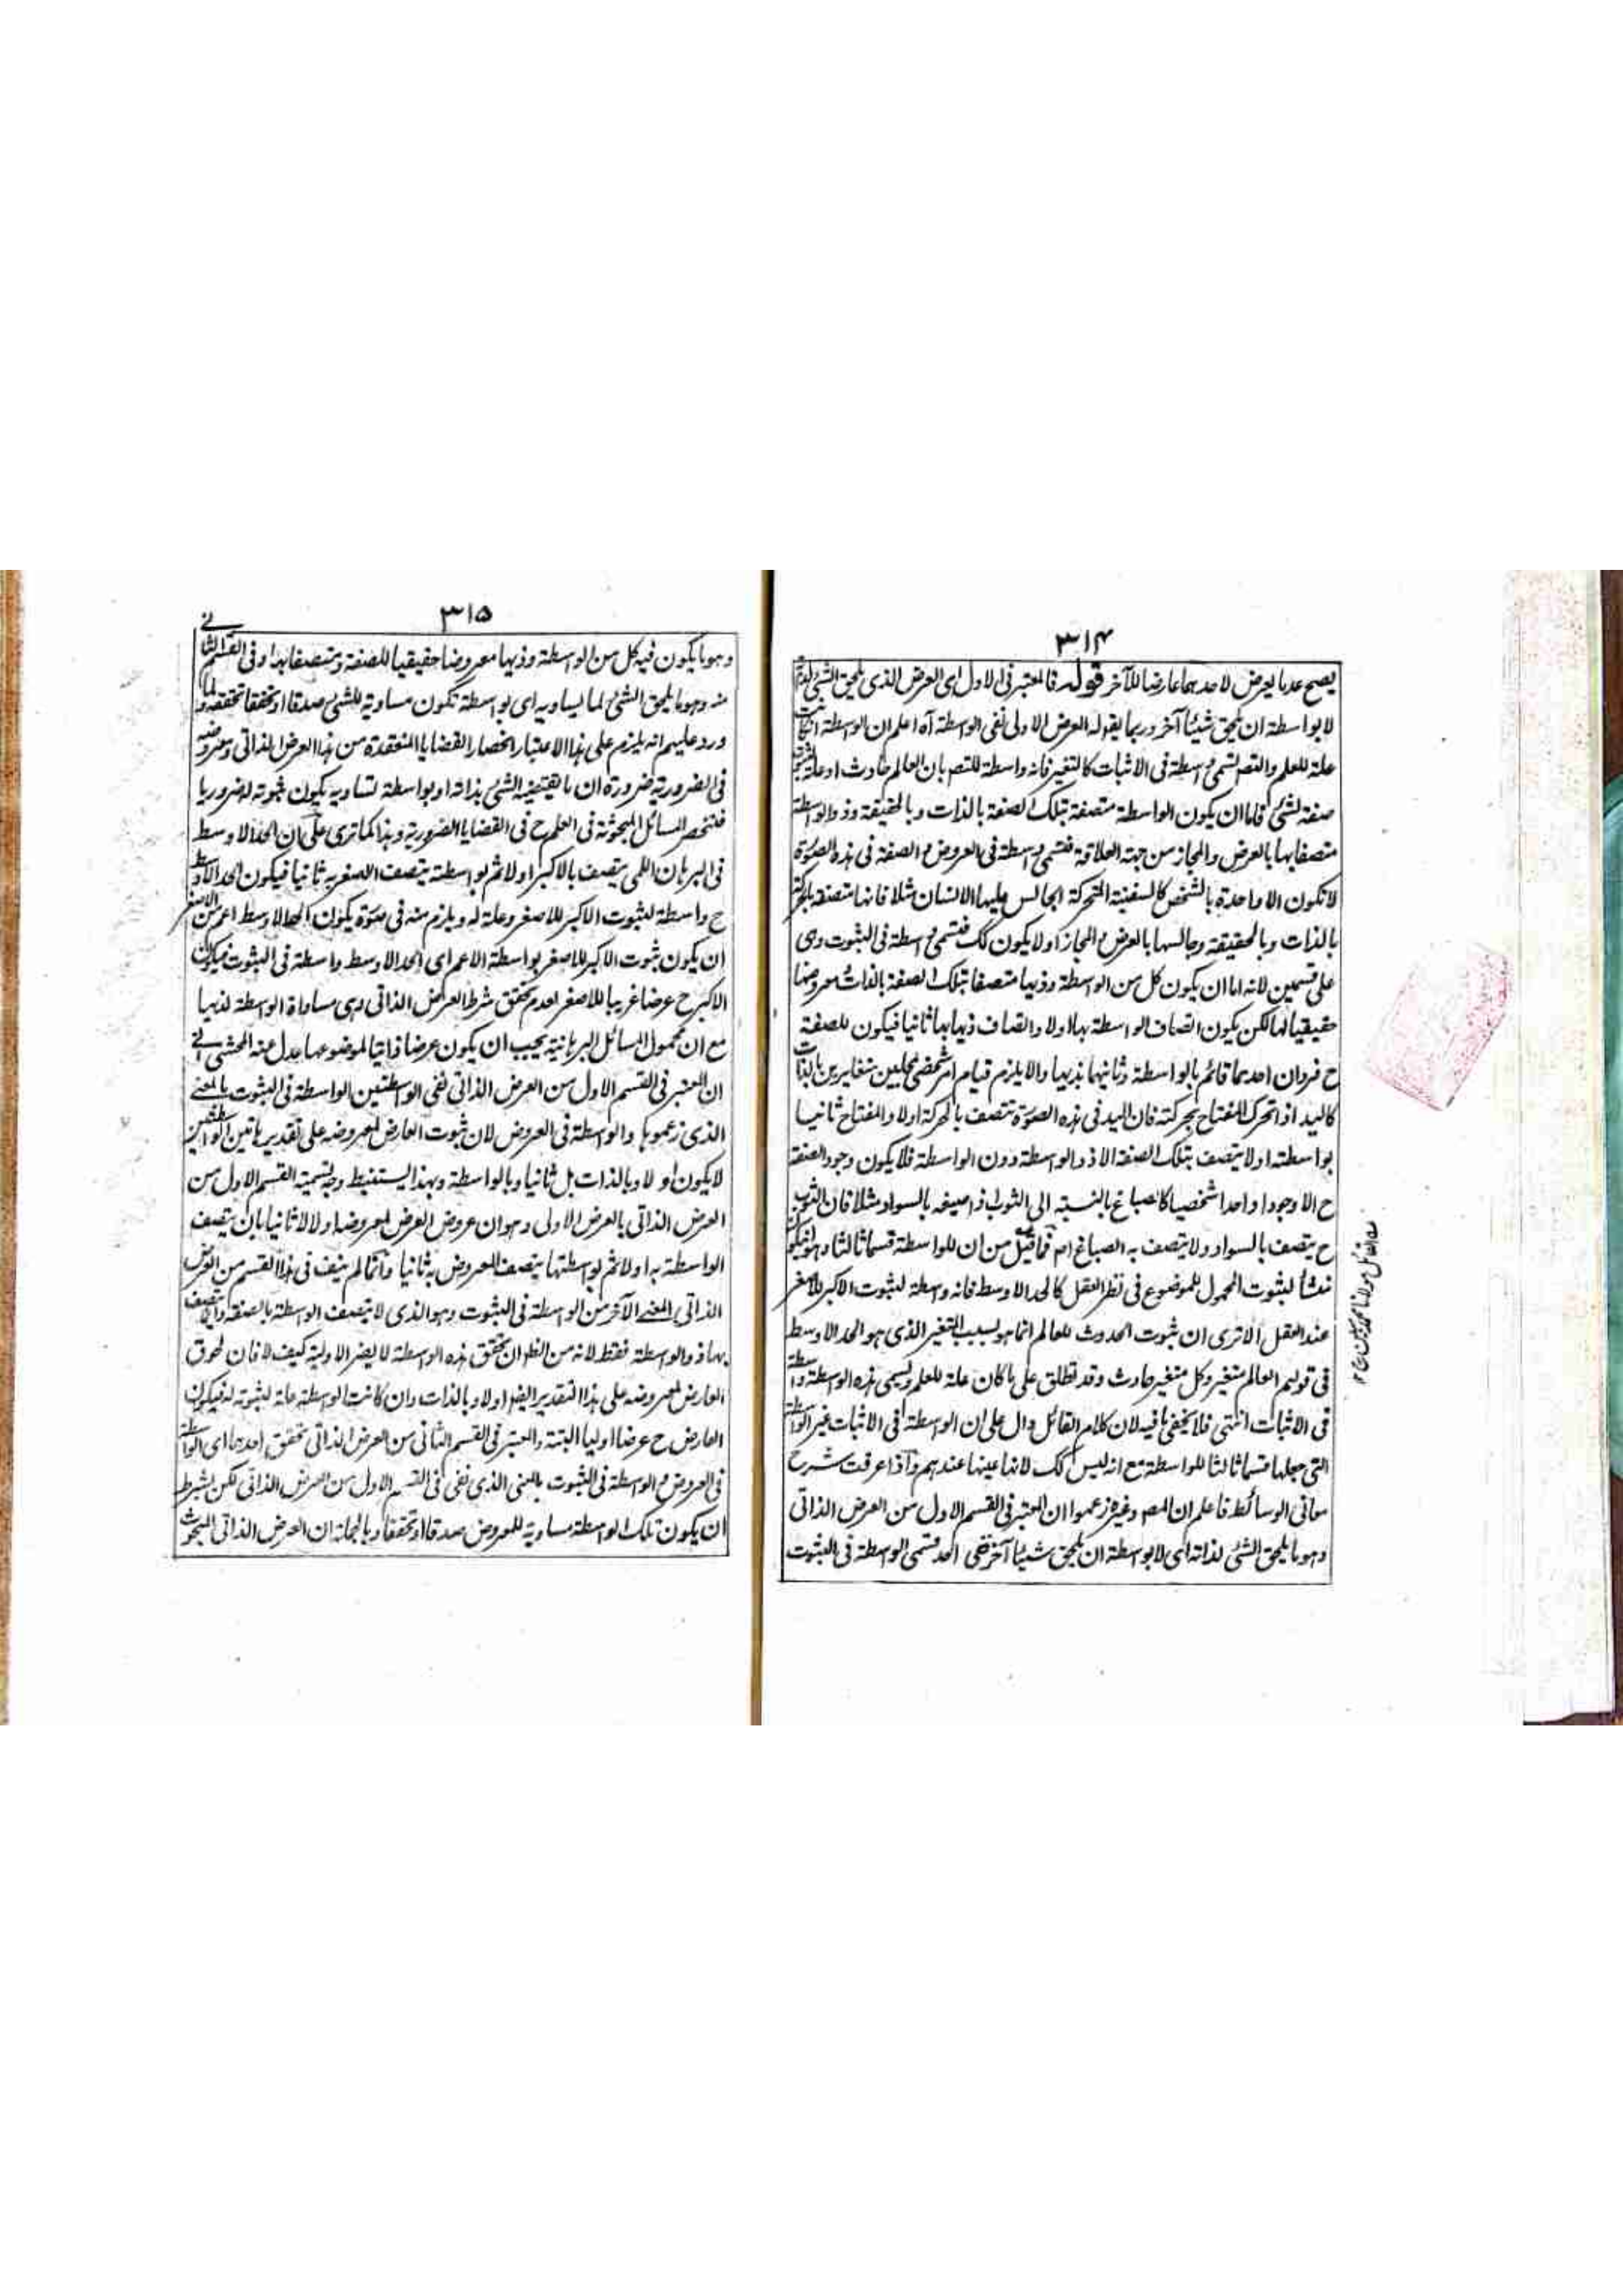 ٣١٤
يصح عدما يعرض لاحدهما عارضا للآخر قوله فالمعتبر فى الاول اى العرض الذى يلحق الشئ لذاته
لا بواسطة ان يلحق شيئا آخر وربما يقوله العرض الاولى نفى الواسطة آه اعلم ان الواسطة انكانت
علة للعلم والتصـ تسمى واسطة فى الاثبات كالتغير فانه واسطة للتصـ بان العالم حادث او علة لثبوت
صفة لشئ فاما ان يكون الواسطة متصفة بتلك الصفة بالذات وبالحقيقة وذو الواسطة
متصفا بها بالعرض والمجاز من جهة العلاقة فتسمى واسطة فى العروض والصفة فى هذه الصورة
لا تكون الا واحدة بالشخص كالسفينة المتحركة الجالس عليها الانسان مثلا فانها متصفة بالحركة
بالذات وبالحقيقة وجالسها بالعرض والمجاز او لا يكون كك فتسمى واسطة فى الثبوت وهى
على قسمين لانه اما ان يكون كل من الواسطة وذيها متصفا بتلك الصفة بالذات ومعروضا
حقيقيا لها لكن يكون اتصاف الواسطة بها اولا واتصاف ذيها بها ثانيا فيكون للصفة
ح فردان احدهما قائم بالواسطة وثانيهما بذيها والا يلزم قيام امر شخصى بمحلين متغايرين بالذات
كاليد اذ اتحرك المفتاح بحركته فان اليد فى هذه الصورة تتصف بالحركة اولا والمفتاح ثانيا
بواسطته او لا يتصف بتلك الصفة الا ذو الواسطة دون الواسطة فلا يكون وجود الصفة
ح الا وجودا واحدا شخصيا كالصباغ بالنسبة الى الثوب اذ اصبغه بالسواد مثلا فان الثوب
ح يتصف بالسواد ولا يتصف به الصباغ اهـ فما قيل من ان للواسطة قسما ثالثا وهو ان يكون
منشأ لثبوت المحمول للموضوع فى نظر العقل كالحد الاوسط فانه واسطة لثبوت الاكبر للاصغر
عند العقل الا ترى ان ثبوت الحدوث للعالم انما هو بسبب التغير الذى هو الحد الاوسط
فى قولهم العالم متغير وكل متغير حادث وقد تطلق على ما كان علة للعلم ويسمى هذه الواسطة واسطة
فى الاثبات انتهى فلا يخفى ما فيه لان كلام القائل دال على ان الواسطة فى الاثبات غير الواسطة
التى جعلها قسما ثالثا للواسطة مع انه ليس كك لانها عينها عندهم واذا عرفت شرح
معانى الوسائط فاعلم ان المصـ وغيره زعموا ان المعتبر فى القسم الاول من العرض الذاتى
وهو ما يلحق الشئ لذاته اى لا بواسطة ان يلحق شيئا آخر نفى احد قسمى الواسطة فى الثبوت
٣١٥
وهو ما يكون فيه كل من الواسطة وذيها معروضا حقيقيا للصفة ومتصفا بها وفى القسم الثانى
منه وهو ما يلحق الشئ لما يساويه اى بواسطة تكون مساوية للشئ صدقا او تحققا تحققه ولما
ورد عليهم انه يلزم على هذا الاعتبار انحصار القضايا المنعقدة من هذا العرض الذاتى ومعروضه
فى الضرورية ضرورة ان ما يقتضيه الشئ بذاته او بواسطة تساويه يكون ثبوته له ضروريا
فتنحصر المسائل المبحوثة فى العلم ح فى القضايا الضرورية وهذا كما ترى على ان الحد الاوسط
فى البرهان اللمى يتصف بالاكبر اولا ثم بواسطة يتصف الاصغر به ثانيا فيكون الحد الاوسط
ح واسطة لثبوت الاكبر للاصغر وعلة له ويلزم منه فى صورة يكون الحد الاوسط اعم من الاصغر
ان يكون ثبوت الاكبر للاصغر بواسطة الاعم اى الحد الاوسط واسطة فى الثبوت فيكون
الاكبر ح عرضا غريبا للاصغر لعدم تحقق شرط العرض الذاتى وهى مساواة الواسطة لذيها
مع ان محمول المسائل البرهانية يجب ان يكون عرضا ذاتيا لموضوعها عدل عنه المحشى الى
ان المعتبر فى القسم الاول من العرض الذاتى نفى الواسطتين الواسطة فى الثبوت بالمعنى
الذى زعموها والواسطة فى العروض لان ثبوت العارض لمعروضه على تقدير هاتين الواسطتين
لا يكون اولا وبالذات بل ثانيا وبالواسطة وبهذا يستنبط وجه تسمية القسم الاول من
العرض الذاتى بالعرض الاولى وهو ان عروض العرض لمعروضه اولا لا ثانيا بان يتصف
الواسطة به اولا ثم بواسطتها يتصف المعروض به ثانيا وانما لم ينف فى هذا القسم من العرض
الذاتى المعنى الآخر من الواسطة فى الثبوت وهو الذى لا يتصف الواسطة بالصفة وانما يتصف
بها ذو الواسطة فقط لانه من الظ ان تحقق هذه الواسطة لا يضر الاولية كيف لا فان لحوق
العارض لمعروضه على هذا التقدير ايضا اولا وبالذات وان كانت الواسطة علة لثبوته له فيكون
العارض ح عرضا اوليا البتة والمعتبر فى القسم الثانى من العرض الذاتى تحقق احدهما اى الواسطة
فى العروض والواسطة فى الثبوت بالمعنى الذى نفى فى القسم الاول من العرض الذاتى لكن بشرط
ان يكون تلك الواسطة مساوية للمعروض صدقا او تحققا وبالجملة ان العرض الذاتى المبحوث